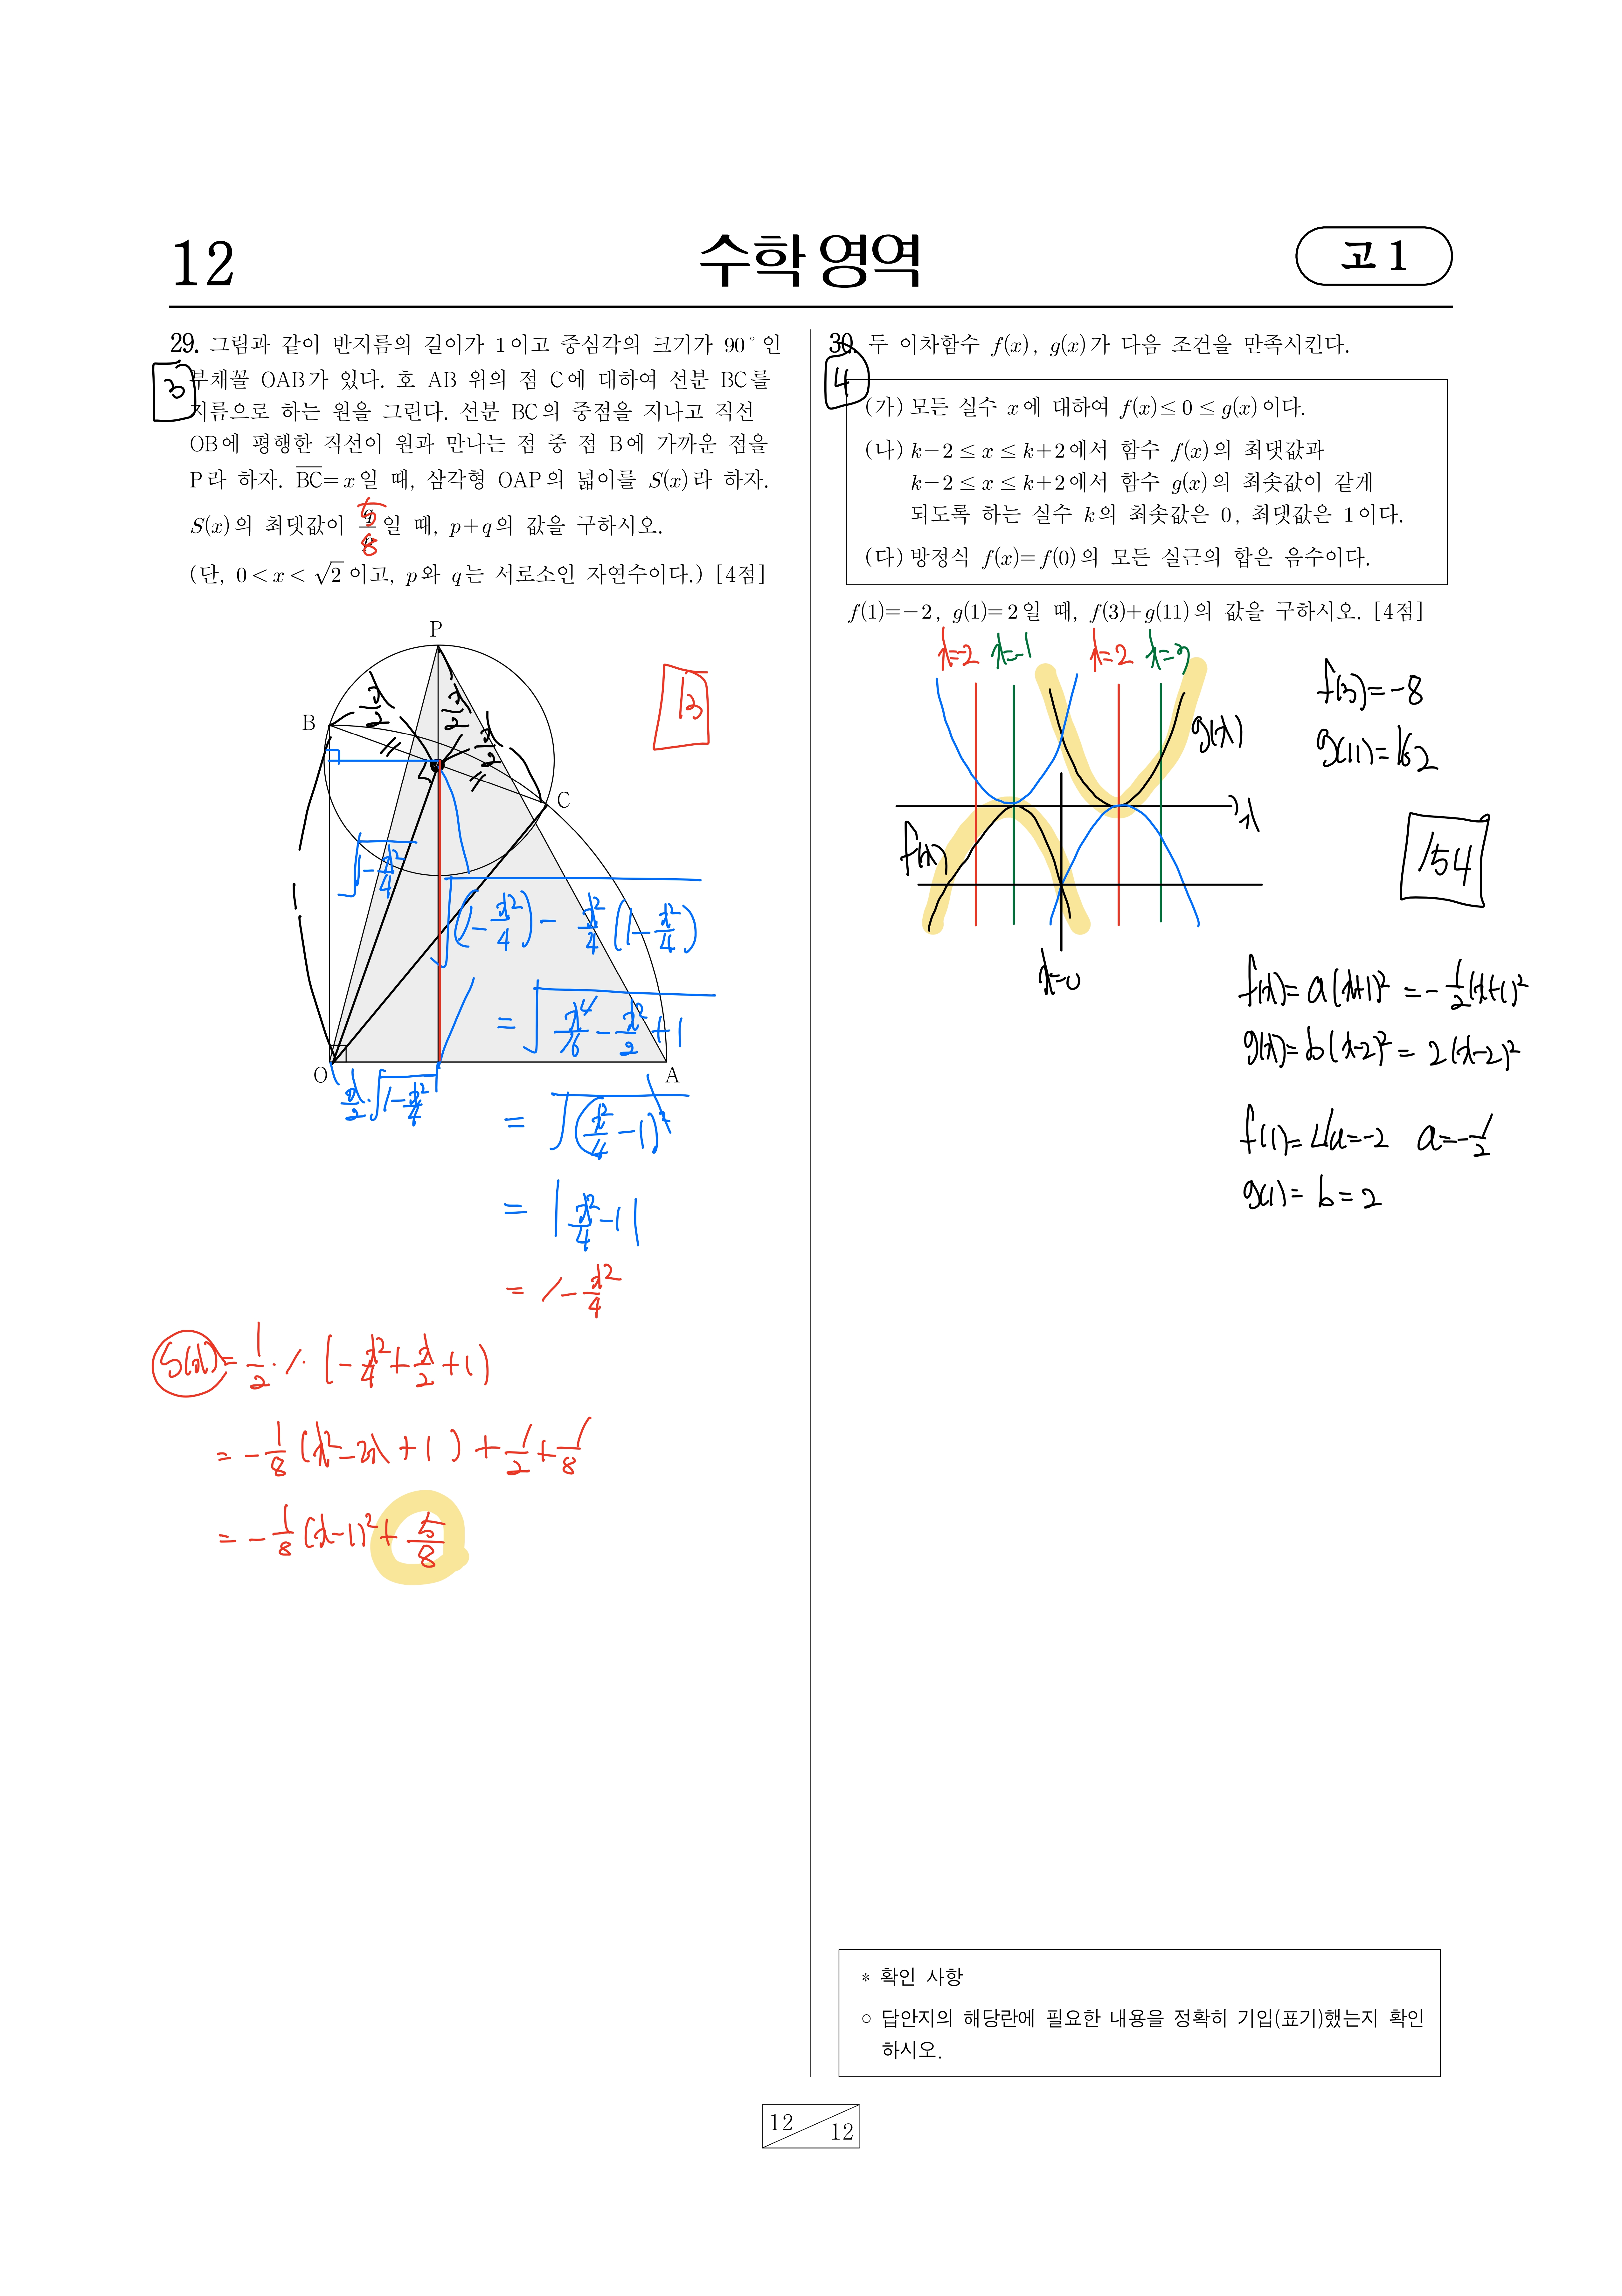 12
수학 영역
고 1
29. 그림과 같이 반지름의 길이가 1이고 중심각의 크기가 90°인
3
부채꼴 OAB가 있다. 호 AB 위의 점 C에 대하여 선분 BC를
지름으로 하는 원을 그린다. 선분 BC의 중점을 지나고 직선
OB에 평행한 직선이 원과 만나는 점 중 점 B에 가까운 점을
P라 하자. \overline{BC}=x일 때, 삼각형 OAP의 넓이를 S(x)라 하자.
S(x)의 최댓값이 5/8일 때, p+q의 값을 구하시오.
(단, 0<x<√2이고, p와 q는 서로소인 자연수이다.) [4점]
P
B
C
O
A
x/2
x/2
x/2
1
13
√(1-x²/4)
√((1-x²/4)-x²/4(1-x²/4))
=√(x⁴/16-x²/2+1)
x/2·√(1-x²/4)
=√((x²/4-1)²)
=|x²/4-1|
=1-x²/4
S(x)=1/2·1·(-x²/4+x/2+1)
=-1/8(x²-2x+1)+1/2+1/8
=-1/8(x-1)²+5/8
30. 두 이차함수 f(x), g(x)가 다음 조건을 만족시킨다.
4
(가) 모든 실수 x에 대하여 f(x)≤0≤g(x)이다.
(나) k-2≤x≤k+2에서 함수 f(x)의 최댓값과
k-2≤x≤k+2에서 함수 g(x)의 최솟값이 같게
되도록 하는 실수 k의 최솟값은 0, 최댓값은 1이다.
(다) 방정식 f(x)=f(0)의 모든 실근의 합은 음수이다.
f(1)=-2, g(1)=2일 때, f(3)+g(11)의 값을 구하시오. [4점]
x=-2 x=-1 x=2 x=3
g(x)
x
f(x)
x=0
f(3)=-8
g(11)=162
154
f(x)=a(x+1)²=-1/2(x+1)²
g(x)=b(x-2)²=2(x-2)²
f(1)=4a=-2 a=-1/2
g(1)=b=2
* 확인 사항
○ 답안지의 해당란에 필요한 내용을 정확히 기입(표기)했는지 확인
하시오.
12
12